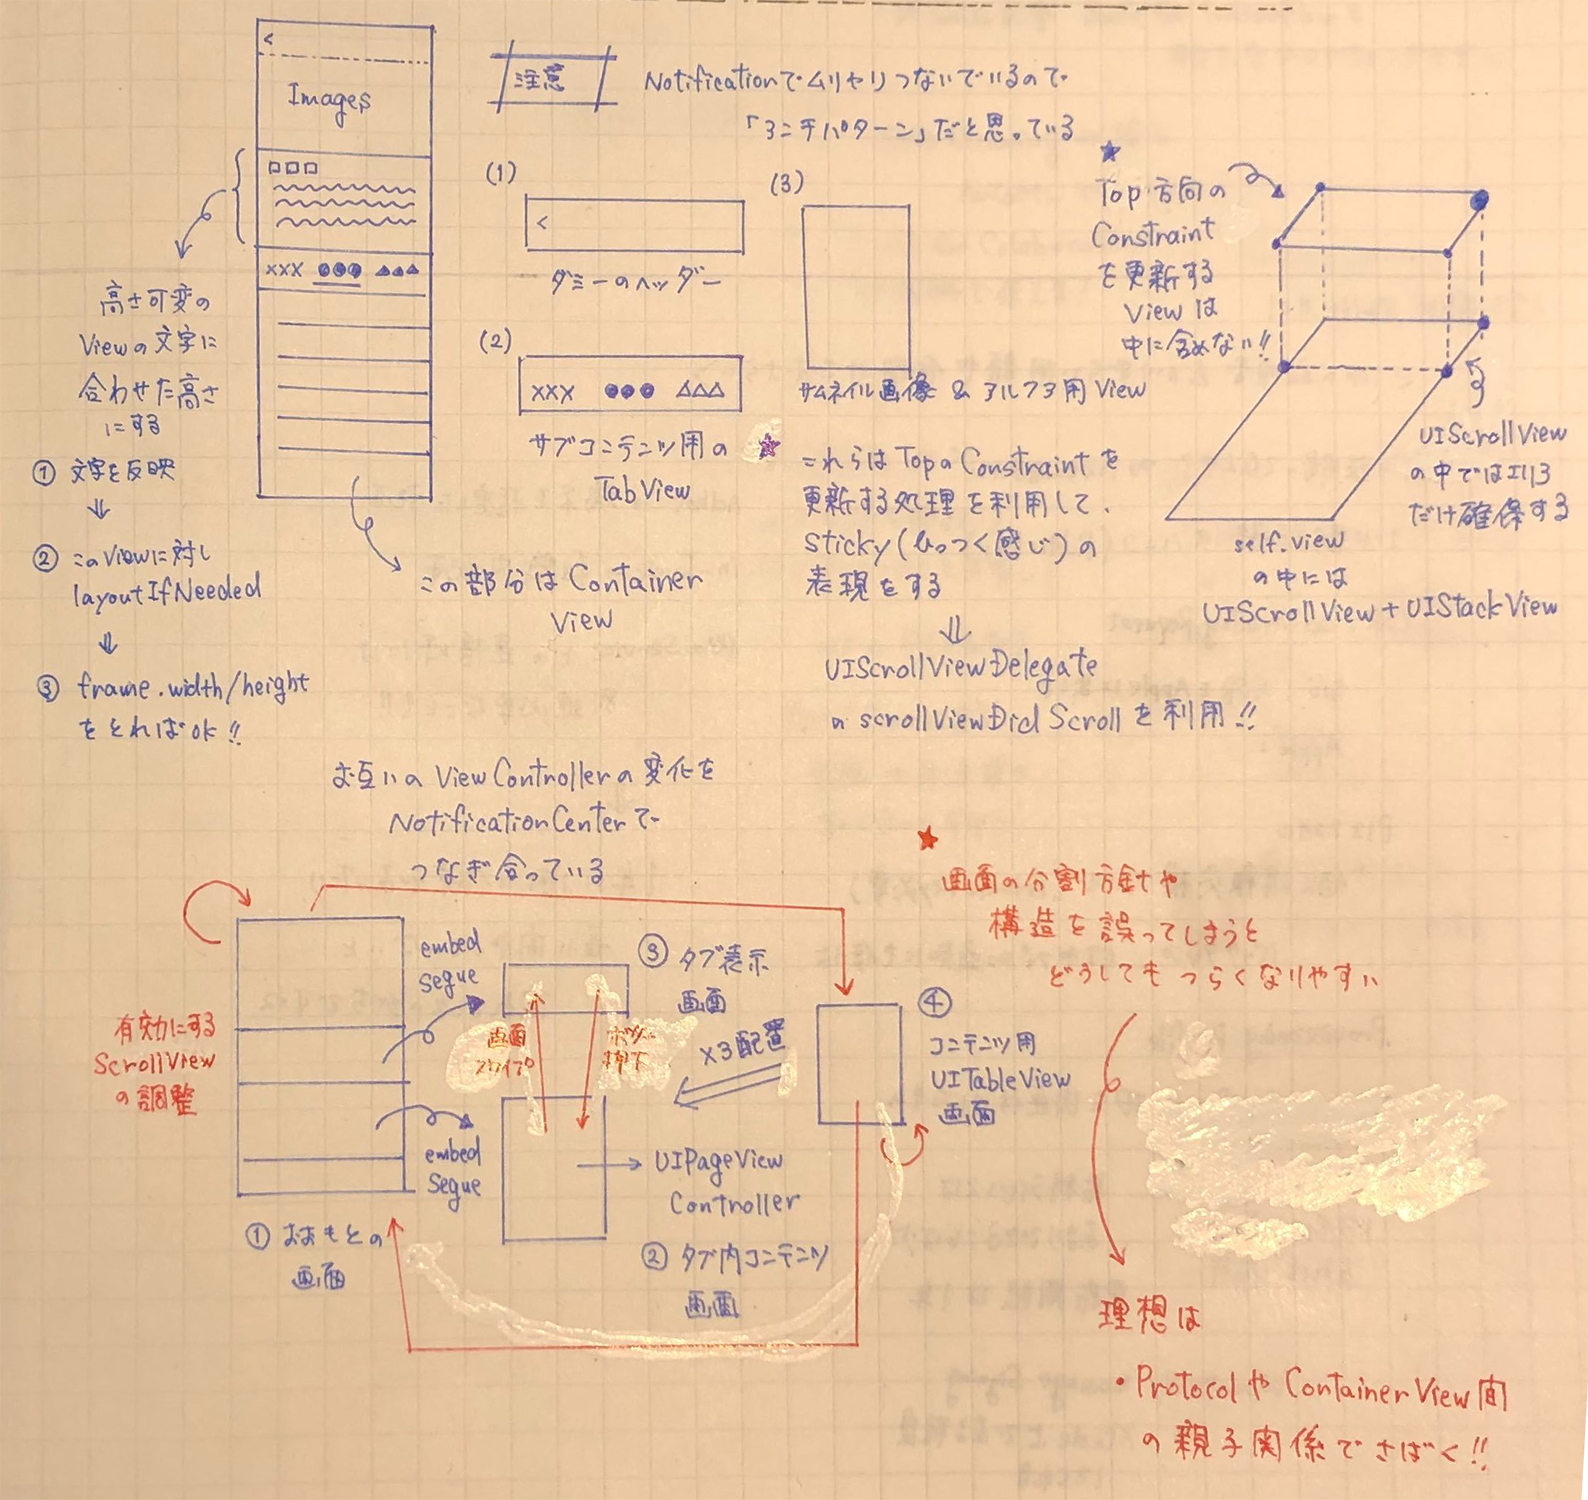 <
Images
注意
Notificationでムリヤリつないでいるので
「アンチパターン」だと思っている
高さ可変の
Viewの文字に
合わせた高さ
にする
① 文字を反映
⇓
② このViewに対し
layoutIfNeeded
⇓
③ frame.width/height
をとればOK!!
xxx ●●● △△△
この部分は Container
View
(1)
<
ダミーのヘッダー
(2)
xxx ●●● △△△
サブコンテンツ用の
TabView
(3)
サムネイル画像 & アルファ用 View
★
これらは TopのConstraintを
更新する処理を利用して、
Sticky(ひっつく感じ)の
表現をする
⇓
UIScrollViewDelegate
の scrollViewDidScroll を利用!!
★
Top方向の
Constraint
を更新する
Viewは
中に含めない!!
UIScrollView
の中ではエリア
だけ確保する
self.view
の中には
UIScrollView + UIStackView
お互いの ViewControllerの変化を
NotificationCenterで
つなぎ合っている
有効にする
ScrollView
の調整
embed
segue
embed
Segue
① おおもとの
画面
③ タブ表示
画面
画面
スワイプ
ボタン
押下
×3配置
UIPageView
Controller
② タブ内コンテンツ
画面
④
コンテンツ用
UITableView
画面
★
画面の分割方針や
構造を誤ってしまうと
どうしてもつらくなりやすい
理想は
・Protocolや ContainerView間
の親子関係でさばく!!